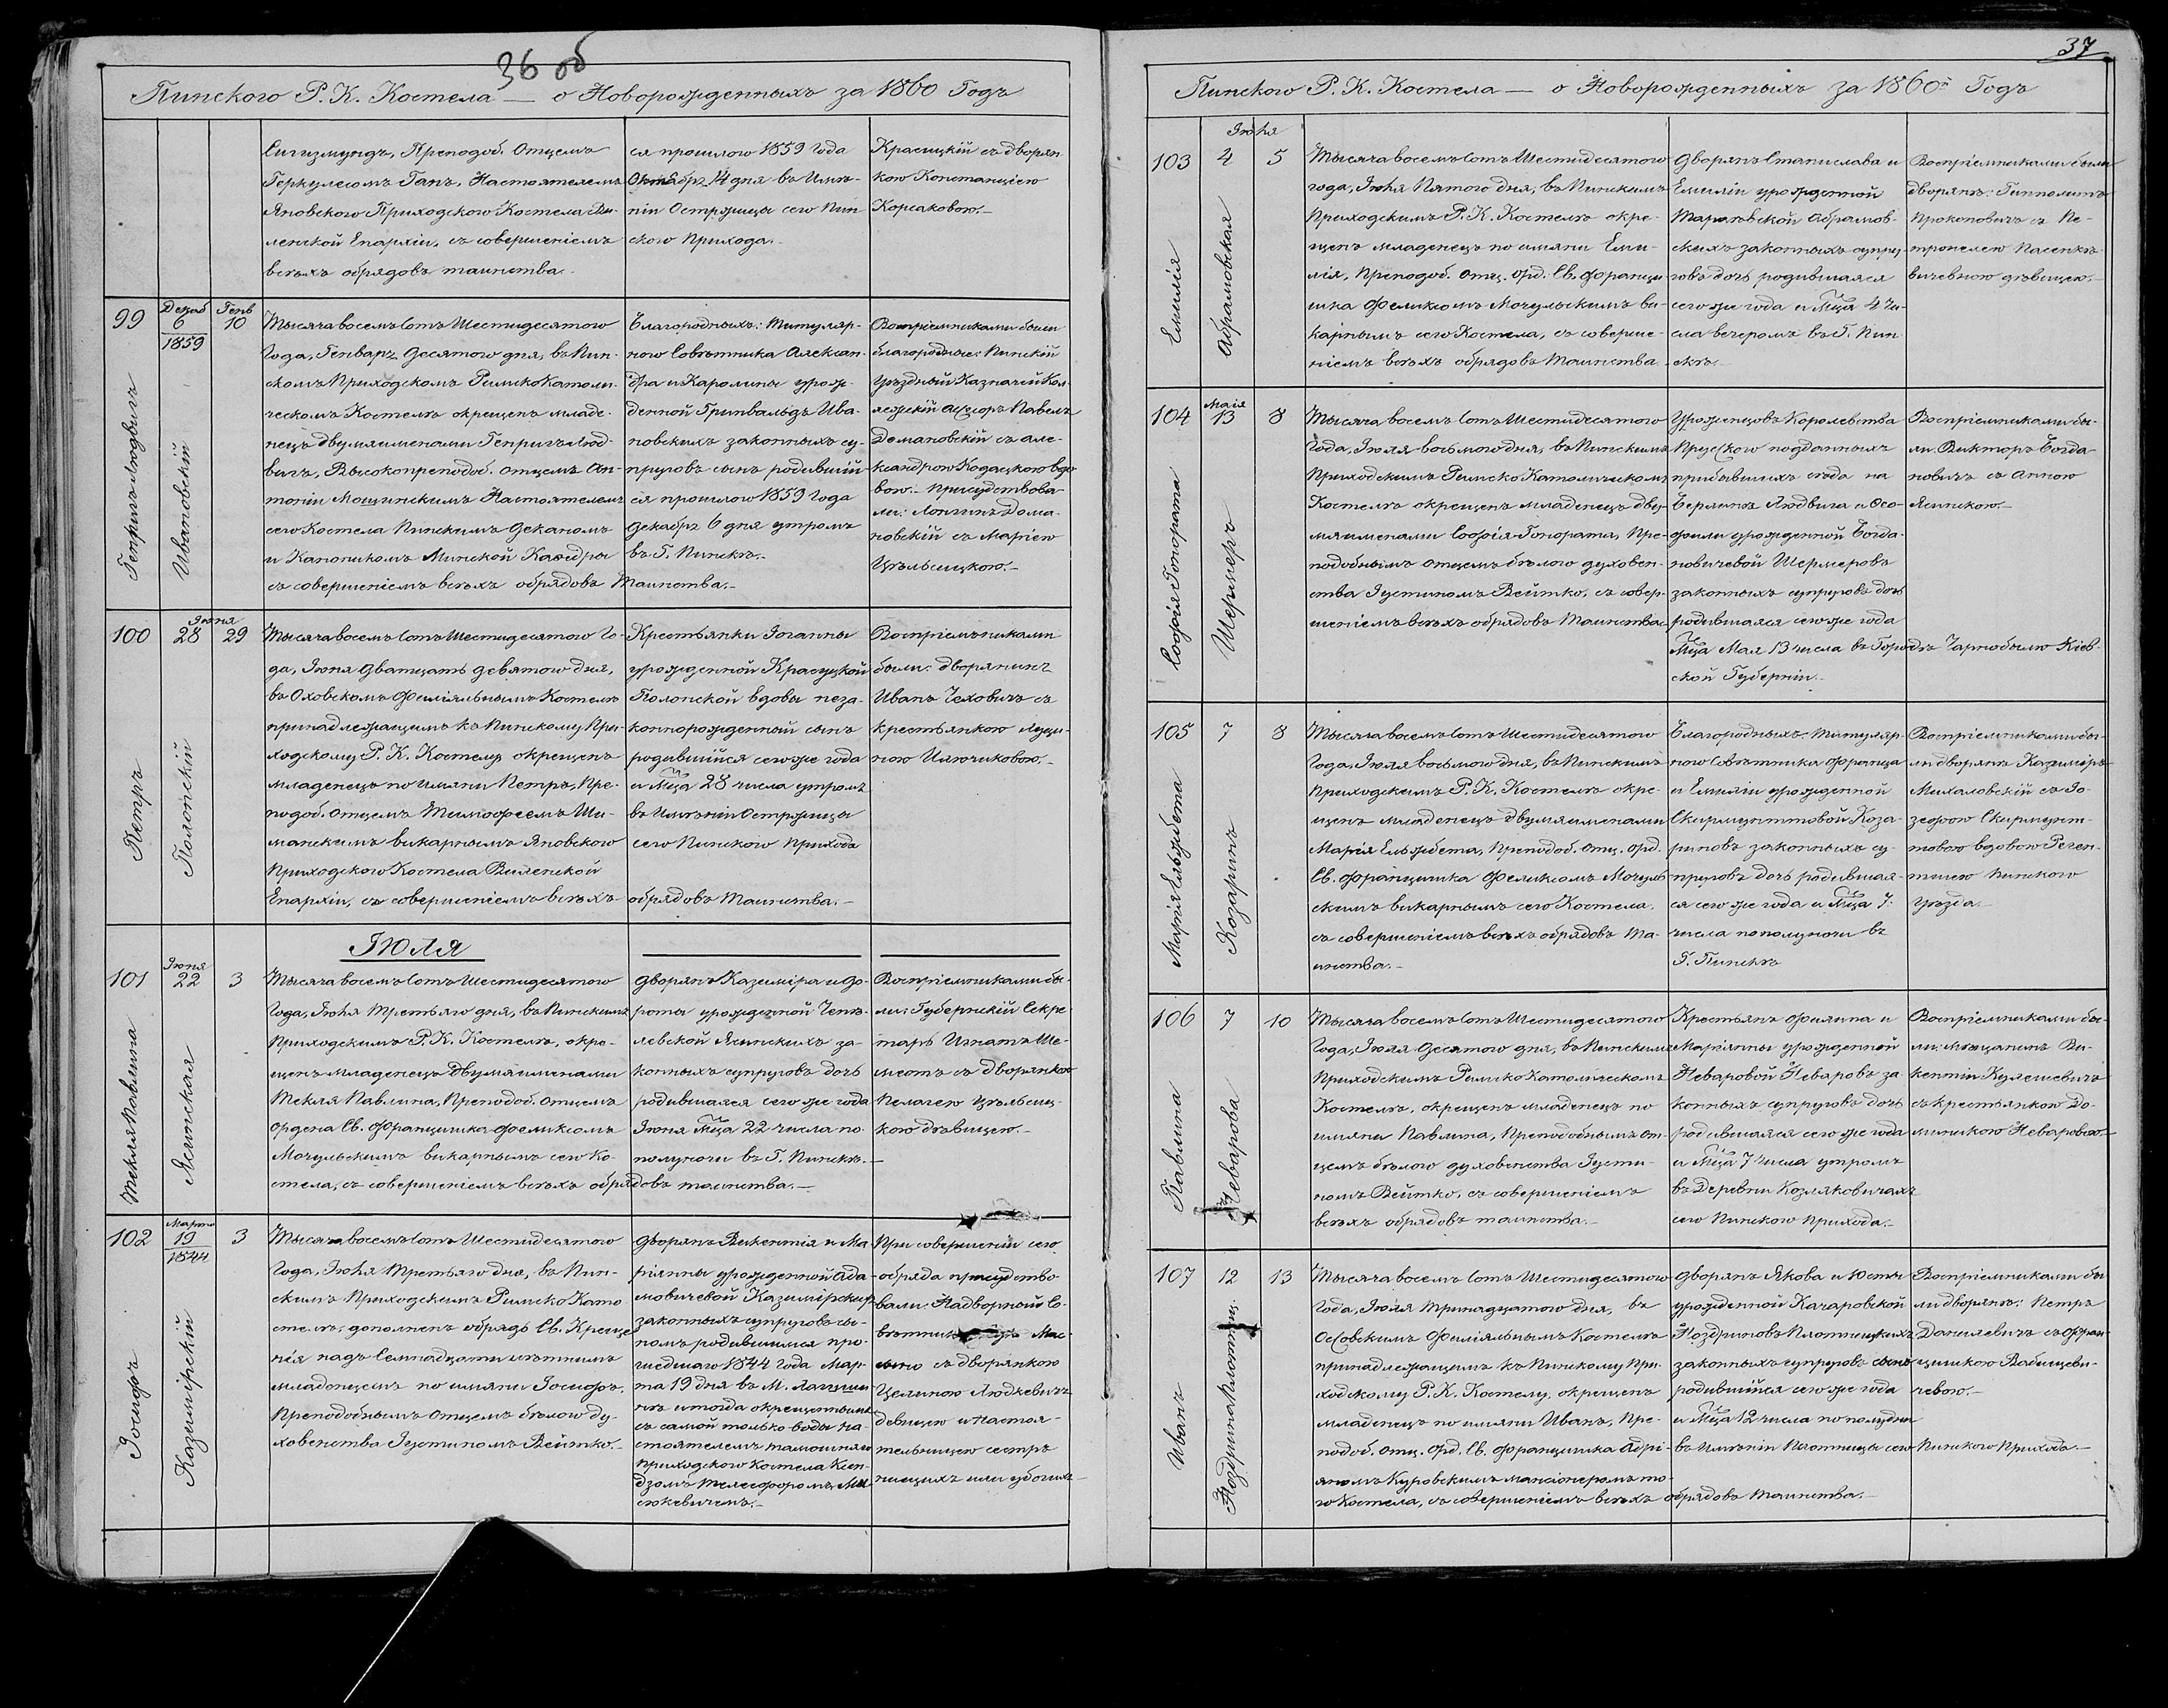 36 об
Пинского Р. К. Костела — о Новорожденныхъ за 1860 Годъ
Сигизмундъ, Преподоб. Отцемъ
Геркулесомъ Ганъ, Настоятелемъ
Яновского Приходского Костела Ви-
ленской Епархіи, съ совершеніемъ
всѣхъ обрядовъ таинства.
ся прошлого 1859 Года
Октября 14 дня въ Имѣ-
ніи Остржицы сего Пин
ского Прихода.
Красицкій съ дворян
кою Констанціею
Корсаковою.—
99
Декаб
6
1859
Генв
10
Генрихъ Людвигъ
Ивановскій
Тысяча восемъ Сотъ Шестидесятого
Года, Генваря Десятого дня, въ Пин-
скомъ Приходскомъ Римско Католи-
ческомъ Костелѣ окрещенъ младе-
нецъ двумя именами Генрихъ Люд-
вигъ, Высокопреподоб. Отцемъ Ан-
тоніи Мошинскимъ Настоятелемъ
сего Костела Пинскимъ Деканомъ
и Каноникомъ Минской Кафедры
съ совершеніемъ всѣхъ обрядовъ Таинства.—
Благородныхъ: Титуляр-
ного Совѣтника Алексан-
дра и Каролины урож-
денной Гринвальдъ Ива-
новскихъ законныхъ су-
пруговъ сынъ родившій
ся прошлого 1859 Года
Декабря 6 дня утромъ
въ Г. Пинскѣ.—
Воспріемниками были
благородные: Пинскій
Уѣздный Казначей Кол-
лежскій Асессоръ Павелъ
Демановскій съ Але-
ксандрою Кодацкою вдо
вою.— Присудствова-
ли: Лонгинъ Дома-
новскій съ Маріею
Цѣльсицкою.—
100
Іюня
28
29
Петръ
Полонскій
Тысяча восемъ Сотъ Шестидесятого Го-
да, Іюня Дватцать девятого дня,
въ Оховскомъ Филіяльнымъ Костелѣ
принадлежащимъ къ Пинскому При-
ходскому Р. К. Костелу окрещенъ
младенецъ по имяни Петръ, Пре-
подоб. Отцемъ Тимофеемъ Ши-
манскимъ викарнымъ Яновского
Приходского Костела Виленской
Епархіи, съ совершеніемъ всѣхъ обрядовъ Таинства.—
Крестьянки Іоганны
урожденной Красуцкой
Полонской вдовы неза-
коннорожденный сынъ
родившійся сего же года
и Мца 28 числа утромъ
въ Имѣніи Остржицы
сего Пинского Прихода
Воспріемъниками
были: дворянинъ
Иванъ Чеховичъ съ
крестьянкою Луци-
ною Илючиковою.—
ІЮЛЯ
101
Іюня
22
3
Текля Павлина
Ясинская
Тысяча восемъ Сотъ Шестидесятого
Года, Іюля Третьяго дня, въ Пинскимъ
Приходскимъ Р. К. Костелѣ, окре-
щенъ младенецъ двумя именами
Текля Павлина, Преподоб. Отцемъ
Ордена Св. Францишка Феликсомъ
Мочульскимъ викарнымъ сего Ко-
стела, съ совершеніемъ всѣхъ обрядовъ таинства.—
Дворянъ Казиміра и До-
роты урожденной Чепѣ-
левской Ясинскихъ за-
конныхъ супруговъ дочь
родившаяся сего же года
Іюня Мца 22 числа по-
полуночи въ Г. Пинскѣ.—
Воспріемниками бы-
ли: Губернскій Секре-
тарь Игнатъ Ше-
метъ съ Дворянкою
Пелагею Цѣльсиц-
кою дѣвицею.—
102
Марта
19
1844
3
Іосифъ
Казимірскій
Тысяча восемъ Сотъ Шестидесятого
Года, Іюля Третьяго дня, въ Пин-
скимъ Приходскимъ Римско Като
стелѣ, дополненъ обрядъ Св. Креще
нія надъ Семнадцати лѣтнимъ
младенцемъ по имяни Іосифъ,
Преподобнымъ Отцемъ бѣлого ду-
ховенства Іустиномъ Вейтко.—
Дворянъ Викентія и Ма-
ріянны урожденной Ада-
мовичевой Казимірскихъ
законныхъ супруговъ сы-
номъ родившимся про-
шедшаго 1844 Года Мар-
та 19 дня въ М. Логиши-
нѣ и тогда окрещеннымъ
съ самой только воды На-
стоятелемъ тамошняго
приходского Костела Ксен-
дзомъ Телесфоромъ
При совершеніи сего
обряда присудство
вали: Надворный Со-
вѣтникъ
съ дворянкою
Целиною Людкевичъ
Девицею и Настоя-
тельницею сестръ
нищихъ или убогихъ
37
Пинского Р. К. Костела — о Новорожденныхъ за 1860й Годъ
103
Іюля
4
5
Емилія
Абрамовская
Тысяча восемъ Сотъ Шестидесятого
года, Іюля Пятого дня, въ Пинскимъ
Приходскимъ Р. К. Костелѣ окре-
щенъ младенецъ по имяни Еми-
лія, Преподоб. Отц. Орд. Св. Францы
шка Феликсомъ Мочульскимъ ви-
карнымъ сего Костела, съ соверше-
ніемъ всѣхъ обрядовъ Таинства.
Дворянъ Станислава и
Емиліи урожденной
Абрамов-
скихъ законныхъ супру-
говъ дочь родившаяся
сего же года и Мца 4 чи-
сла вечеромъ въ Г. Пин
скѣ.—
Воспріемниками были
дворянъ: Гипполитъ
Прокоповичъ съ Пе-
тронелею Пасенкѣ-
вичевною дѣвицею.—
104
Маія
13
8
Софія Гонората
Шермеръ
Тысяча восемъ Сотъ Шестидесятого
Года, Іюля восьмого дня, въ Пинскимъ
Приходскимъ Римско Католическомъ
Костелѣ окрещенъ младенецъ дву-
мя именами Софія-Гонората, Пре-
подобнымъ Отцемъ бѣлого духовен-
ства Іустиномъ Вейтко, съ совер-
шеніемъ всѣхъ обрядовъ Таинства.
Уроженцовъ Королевства
Прусского подданныхъ
прибывшихъ сюда на
Берлинъ Людвига и Ѳео-
фили урожденной Богда-
новичевой Шермеровъ
законныхъ супруговъ дочь
родившаяся сего же года
Мца Мая 13 числа въ Городѣ Чарнобылю Кіев-
ской Губерніи.—
Воспріемниками бы-
ли: Викторъ Богда-
новичъ съ Анною
Ясинскою.—
105
7
8
Марія Ельжбета
Козаринъ
Тысяча восемъ Сотъ Шестидесятого
Года, Іюля восьмого дня, въ Пинскимъ
Приходскимъ Р. К. Костелѣ окре-
щенъ младенецъ двумя именами
Марія Ельжбета, Преподоб. Отц. Орд.
Св. Францишка Феликсомъ Мочуль-
скимъ викарнымъ сего Костела.
съ совершеніемъ всѣхъ обрядовъ Та-
инства.—
Благородныхъ: Титуляр-
ного Совѣтника Франца
и Емиліи урожденной
Скирмунттовой Коза-
риновъ законныхъ су-
пруговъ дочь родившая-
ся сего же года и Мца 7:
числа пополуночи въ
Г. Пинскѣ
Воспріемниками бы-
ли дворянъ Казиміръ
Михаловскій съ Іо-
зефою Скирмунт-
товою вдовою Реген-
тшею Пинского
Уѣзда.—
106
7
10
Павлина
Неварова
Тысяча восемъ Сотъ Шестидесятого
Года, Іюля Десятого дня, въ Пинскимъ
Приходскимъ Римско Католическомъ
Костелѣ, окрещенъ младенецъ по
имяни Павлина, Преподобнымъ От-
цемъ бѣлого духовенства Іусти-
номъ Вейтко, съ совершеніемъ
всѣхъ обрядовъ таинства.—
Крестьянъ Филипа и
Маріянны урожденной
Неваровой Неваровъ за
конныхъ супруговъ дочь
родившаяся сего же года
и Мца 7 числа утромъ
въ Деревни Козляковичахъ
сего Пинского Прихода.—
Воспріемниками бы-
ли: мѣщанинъ Ви-
кентій Кулешевичъ
съ крестьянкою До-
миникою Неваровою.—
107
12
13
Иванъ
Ноздринъ
Тысяча восемъ Сотъ Шестидесятого
Года, Іюля Тринадцатого дня, въ
Оссовскимъ Филіяльнымъ Костелѣ
принадлежащимъ къ Пинскому При-
ходскому Р. К. Костелу, окрещенъ
младенецъ по имяни Иванъ, Пре-
подоб. Отц. Орд. Св. Францишка Адрі-
яномъ Куровскимъ мансіонеромъ то-
го Костела, съ совершеніемъ всѣхъ обрядовъ Таинства.—
Дворянъ Якова и Юсты
урожденной Качаровской
Ноздриновъ Плотницкихъ
законныхъ супруговъ сынъ
родившійся сего же года
и Мца 12 числа по полудни
въ Имѣніи Плотницы сего Пинского Прихода.—
Воспріемниками бы
ли дворянъ: Петръ
Данилевичъ съ Фран-
цишкою Вабищеви-
чевою.—